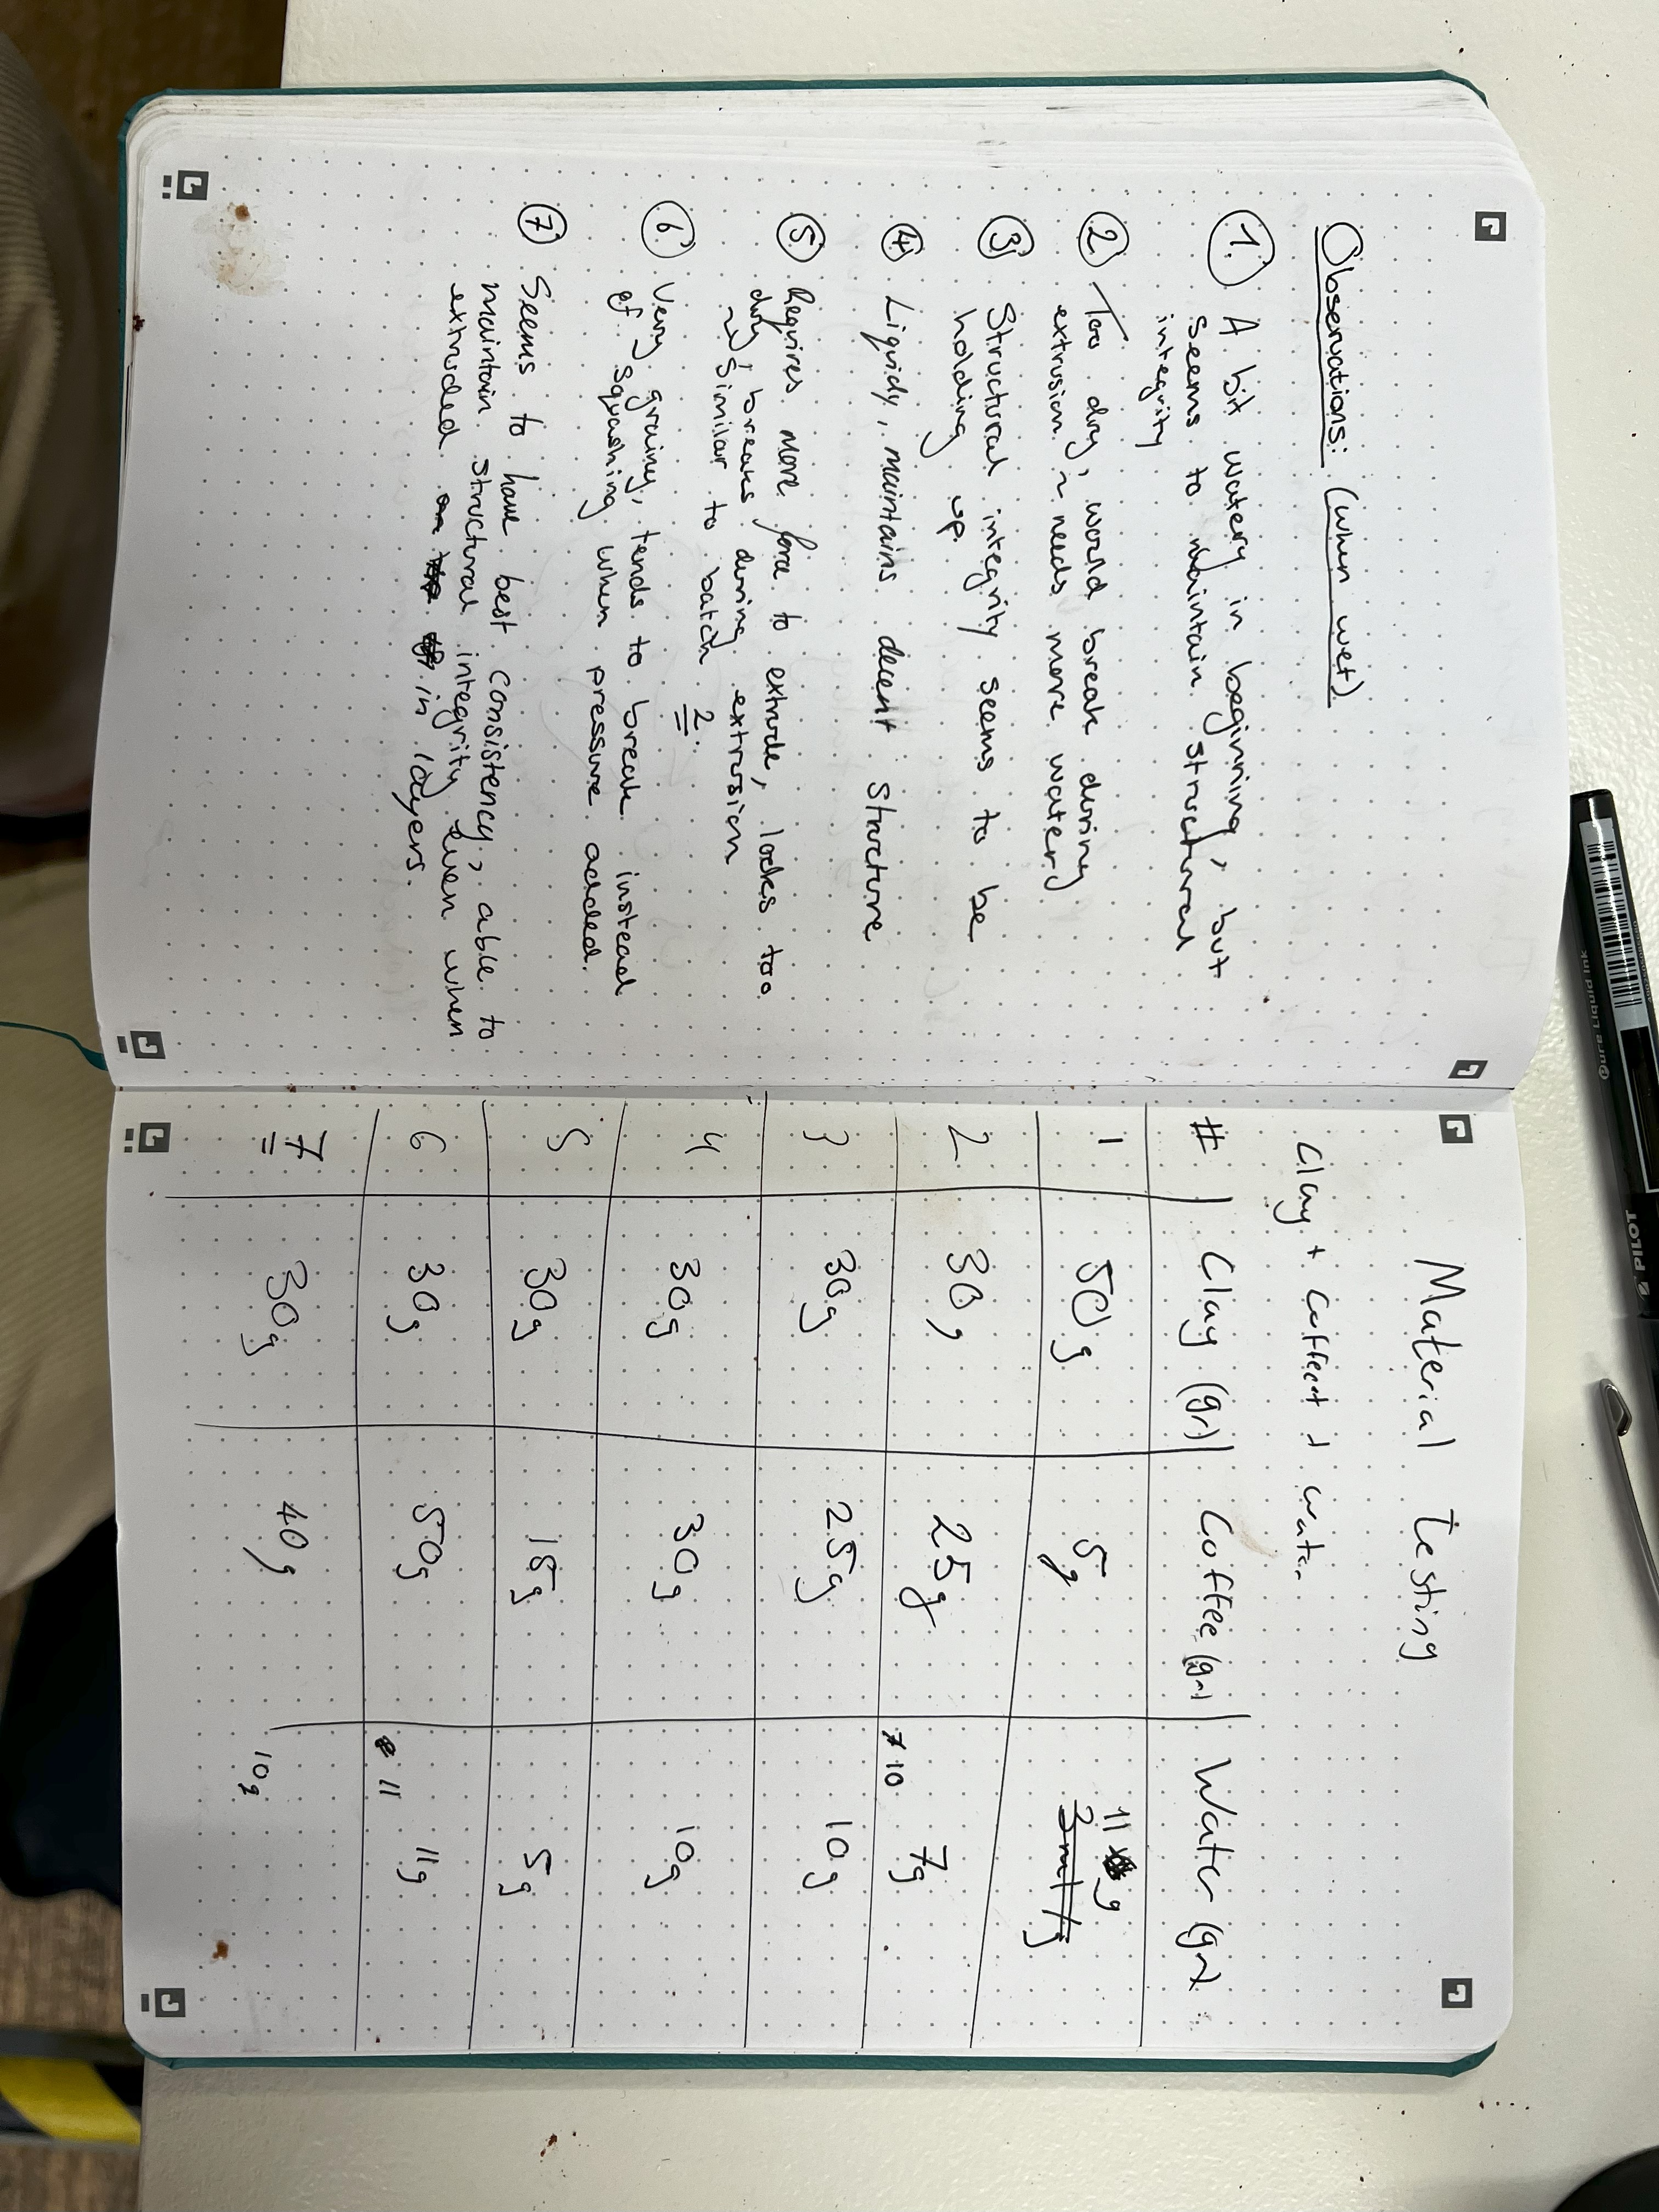 PILOT
Pure Liquid Ink
Observations: (when wet)
1. A bit watery in beginning, but
seems to maintain structural
integrity
2 Too dry, would break during
extrusion ~ needs more water
3 Structural integrity seems to be
holding up.
4 Liquidy, maintains decent structure
5 Requires more force to extrude, looks too
dry, breaks during extrusion
~> Similar to batch 2.
6 Very grainy, tends to break instead
of squashing when pressure added.
7 Seems to have best consistency, able to
maintain structural integrity even when
extruded in layers.
Material Testing
Clay + Coffee + water
# Clay (gr) Coffee (gr) Water (gr)
1 50g 5g 11 g
3ml/g
2 30g 25g 7g
7 10
3 30g 25g 10g
4 30g 30g 10g
5 30g 15g 5g
6 30g 50g 11g
11
7 30g 40g 10g